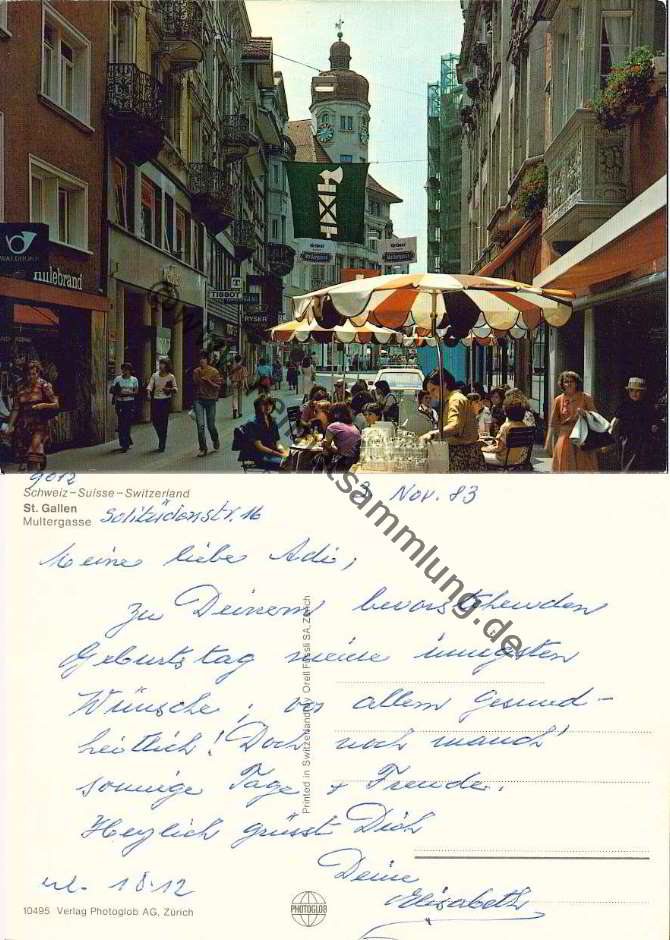 hillebrand
TISSOT
Multergasse
9012
Schweiz–Suisse–Switzerland
3. Nov. 83
St. Gallen
Multergasse
Solitüdenstr. 16
Meine liebe Adi,
Zu Deinem bevorstehenden
Geburtstag meine innigsten
Wünsche, vor allem gesund-
heitlich! Doch noch manch'
sonnige Tage + Freude.
Herzlich grüsst Dich
Deine
Elisabeth
10.12
10495 Verlag Photoglob AG, Zürich
PHOTOGLOB
Printed in Switzerland by Orell Füssli SA, Zürich